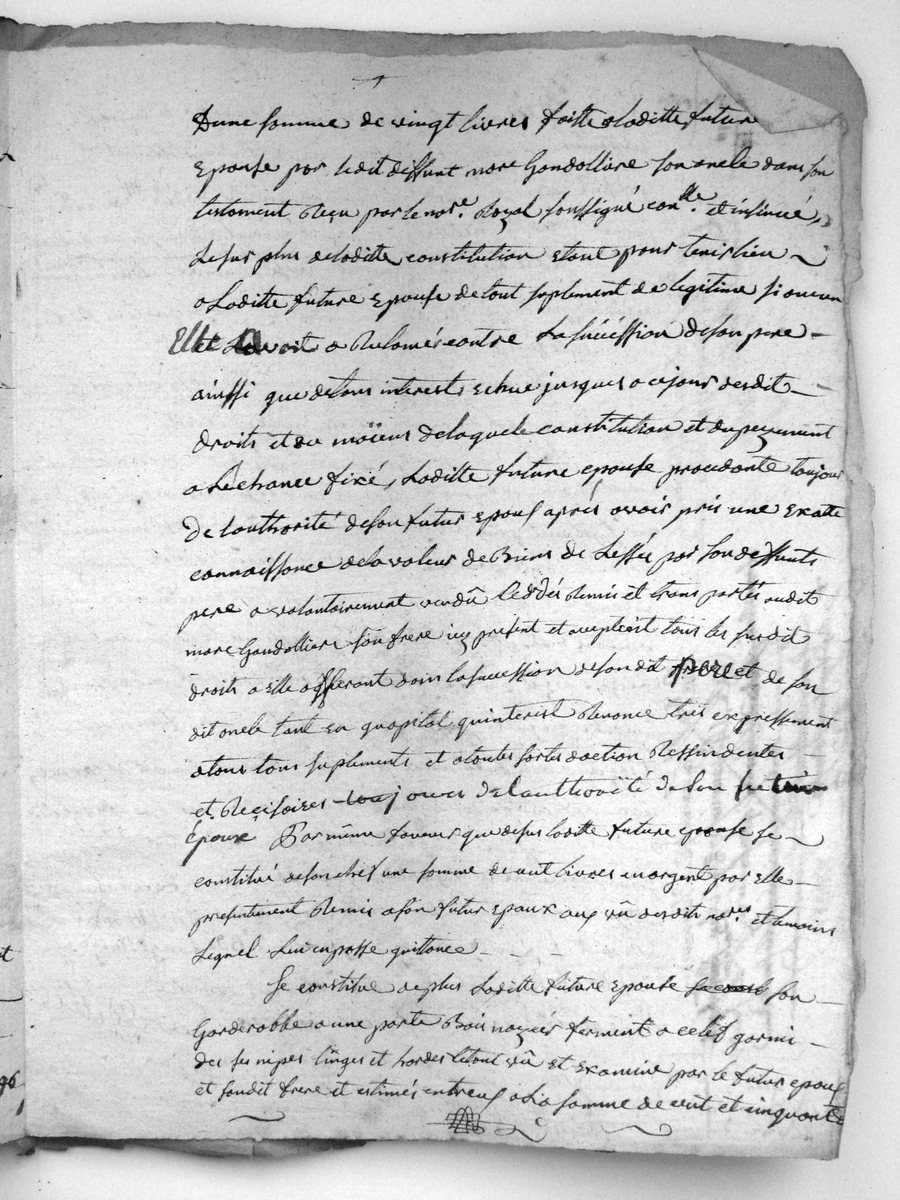 Dune somme de vingt livres faitte a laditte future
Epouse par ledit deffunt marc Gandolliere son oncle dans son
testament Reçu par le no.re Royal soussigné con.lle et insinué,
Le sur plus de laditte constitution etant pour tenir lieu
a Laditte future Epouse de tout suplement de legitime si aucun
Elle avoit a Reclamér contre La succéssion de son pere
ainssi que de tous interests echue jusques a ce jour desdit
droits et au moïens de laquele constitution et du peyement
a Léchance fixé, Laditte future epouse procedante toujour
De Lauthorité de son futur epous aprés avoir pris une exatte
connaissance de la valeur de Biens de Lessés par son deffunts
pere a volontairement vendû Ceddés Remis et trans portés audit
marc Gandolliere son frere icy present et aceptient tous les susdit
droits a elle afferant dans la succession de son dit pere et de son
dit oncle tant en quapital quinterest Renonce trés expressement
a tous suplements et a toutes sortes daction Ressindentes
et Recisoires toujours de lauthorité de son futur
Époux Par même faveur que desus laditte future epouse se
constitué de son chef une somme de cent livres en argent par elle
presentement Remis a son futur Epoux au vû desdits no.res et temoins
Lequel Lui en passe quittance
Se constitue de plus Laditte future Epouse son
Garderobbe a une porte Bois noyér ferment a clef garni
des ses nipes linges et hardes le tout vû et examine par le futur epous
et sondit frere et estimés entreus a La somme de cent et cinquante